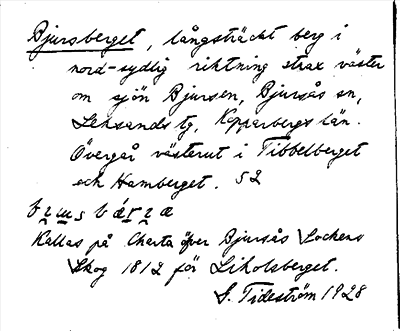 Bjursberget, långsträckt berg i
nord-sydlig riktning strax väster
om sjön Bjursen, Bjursås sn,
Leksands tg, Kopparbergs län.
Övergår västerut i Tibbelberget
och Hamberget. S2
Kallas på Charta öfver Bjursås Sockens
Skog 1812 för Liholsberget.
S. Tideström 1928